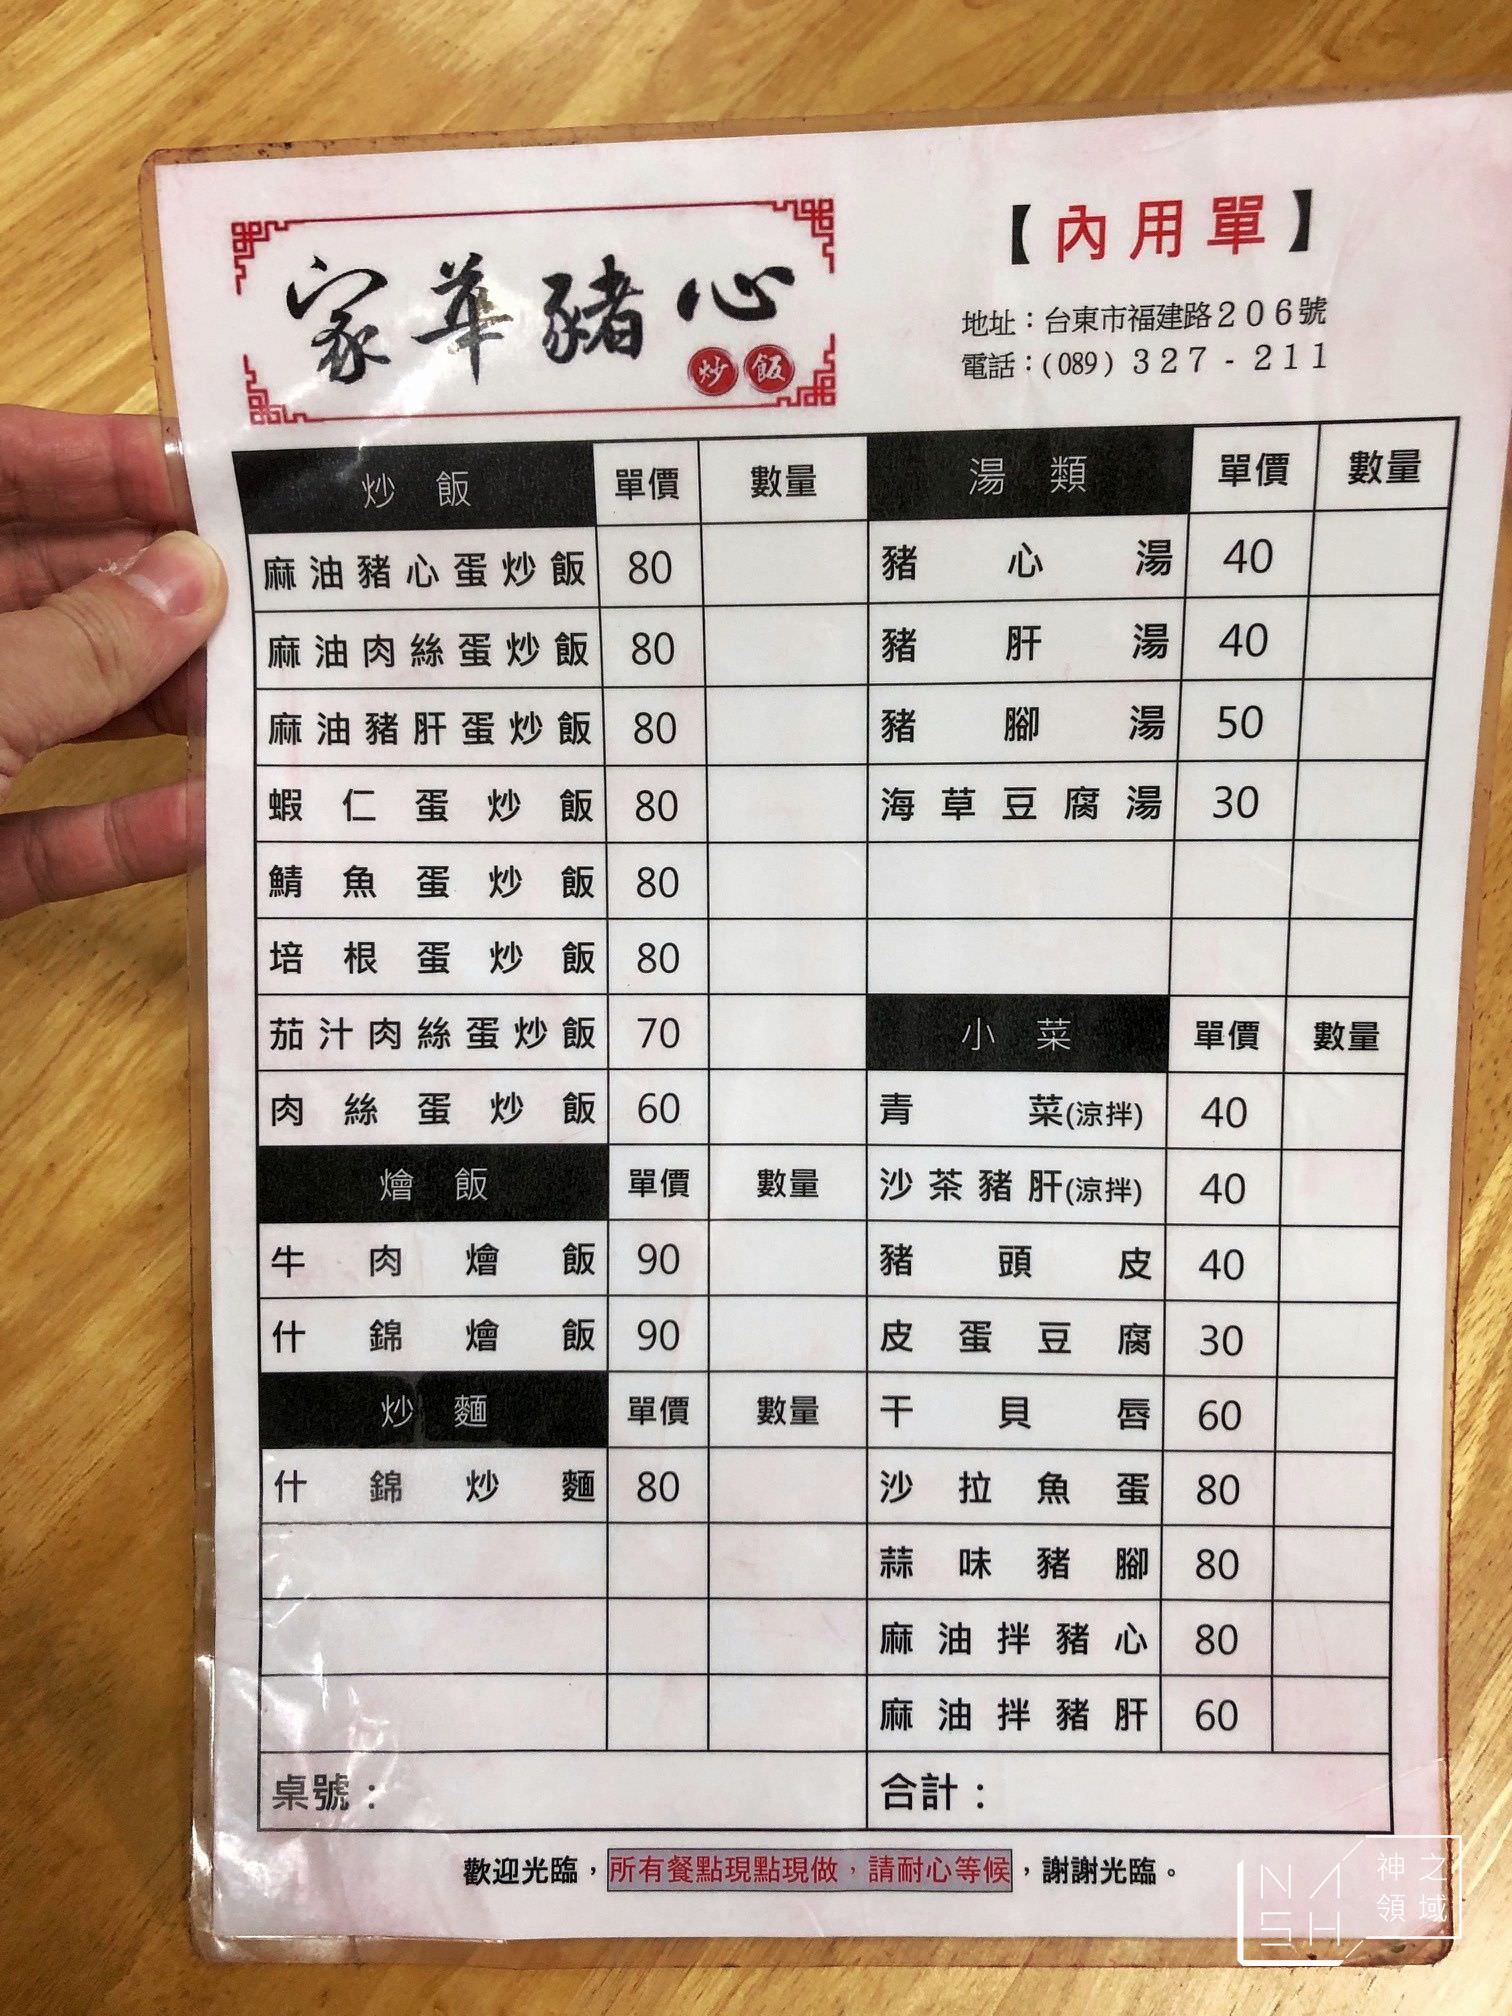 家華豬心
炒飯
【內用單】
地址：台東市福建路206號
電話：(089) 327-211
炒飯 單價 數量
麻油豬心蛋炒飯 80
麻油肉絲蛋炒飯 80
麻油豬肝蛋炒飯 80
蝦仁蛋炒飯 80
鯖魚蛋炒飯 80
培根蛋炒飯 80
茄汁肉絲蛋炒飯 70
肉絲蛋炒飯 60
燴飯 單價 數量
牛肉燴飯 90
什錦燴飯 90
炒麵 單價 數量
什錦炒麵 80
湯類 單價 數量
豬心湯 40
豬肝湯 40
豬腳湯 50
海草豆腐湯 30
小菜 單價 數量
青菜(涼拌) 40
沙茶豬肝(涼拌) 40
豬頭皮 40
皮蛋豆腐 30
干貝唇 60
沙拉魚蛋 80
蒜味豬腳 80
麻油拌豬心 80
麻油拌豬肝 60
桌號：
合計：
歡迎光臨，所有餐點現點現做，請耐心等候，謝謝光臨。
NASH
神之領域